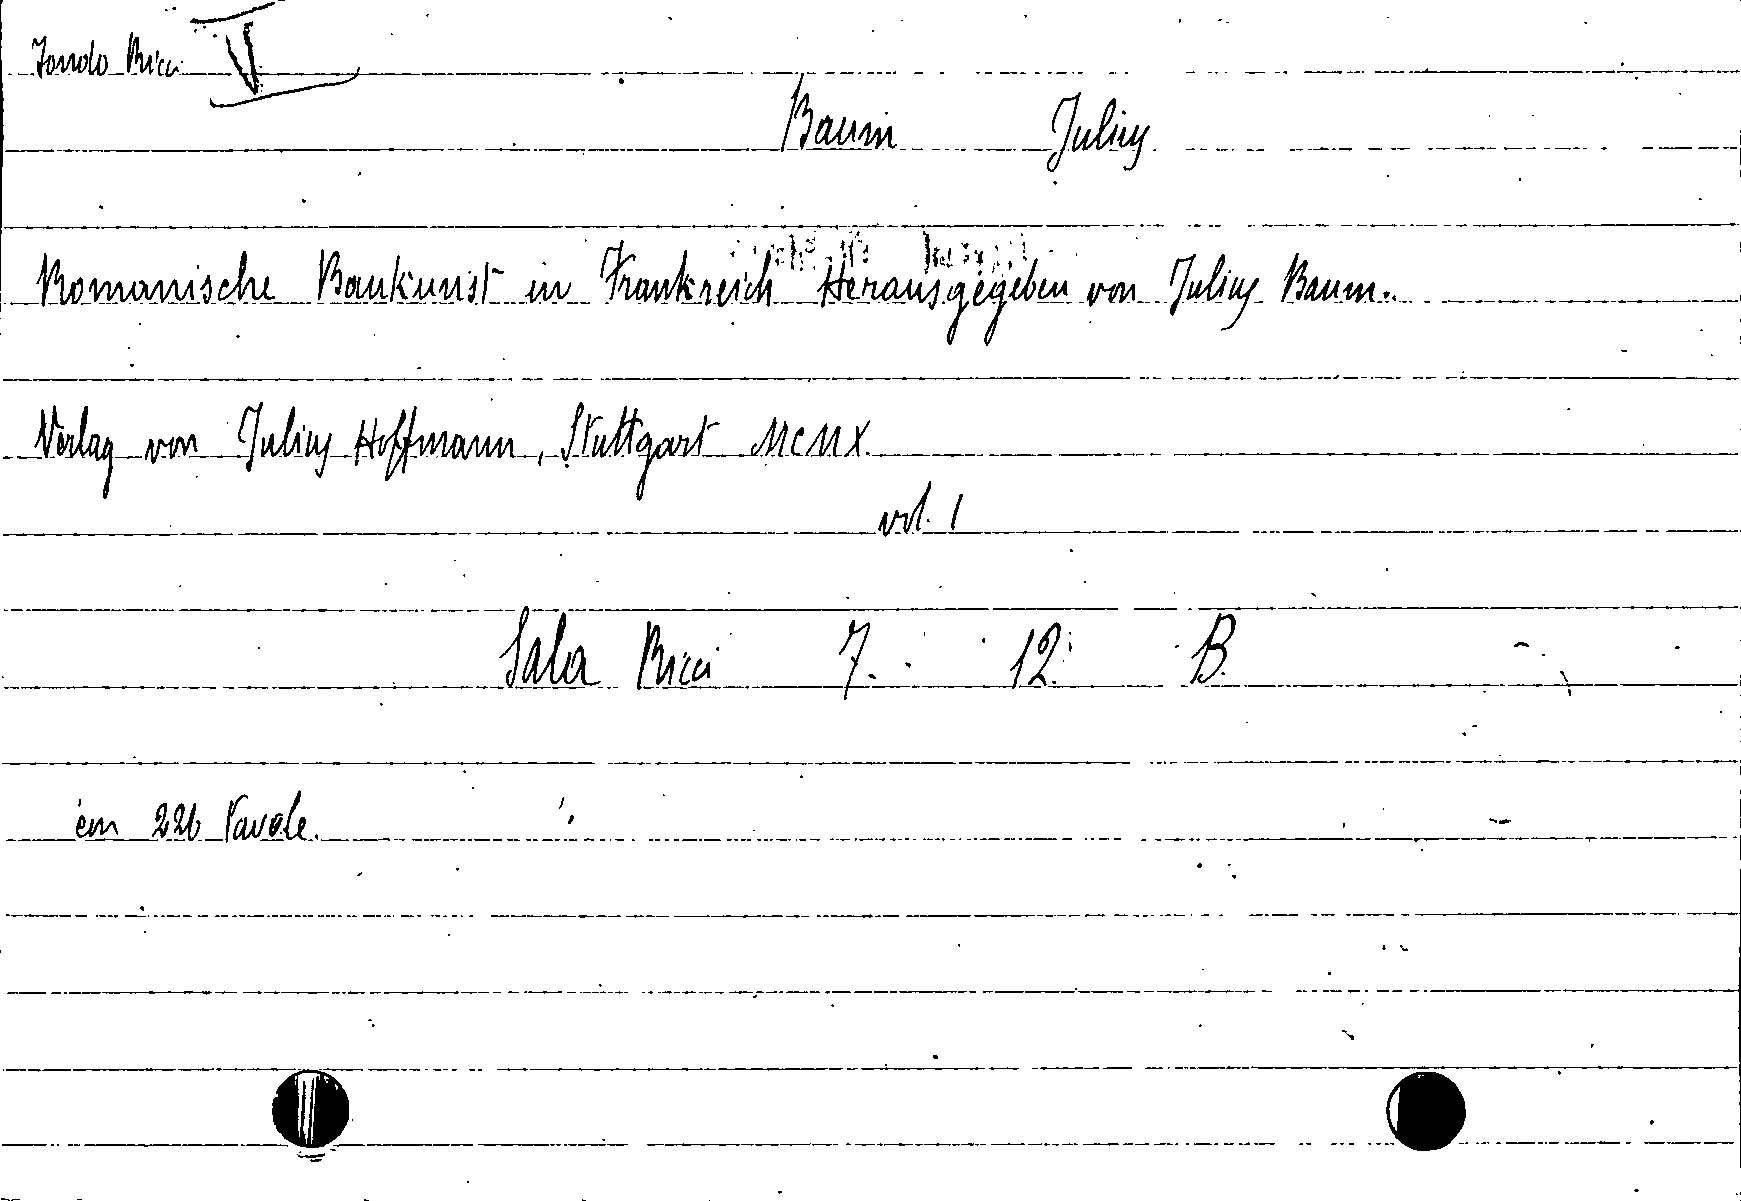 Fondo Ricci V
Baum Julius
Romanische Baukunst in Frankreich Herausgegeben von Julius Baum.
Verlag von Julius Hoffmann, Stuttgart MCMX.
vol. 1
Sala Ricci 7. 12. B.
con 226 Tavole.